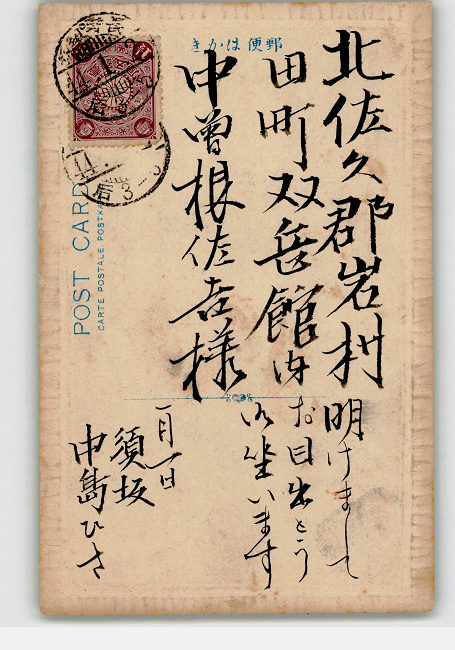 郵便はかき
北佐久郡岩村
田町双岳館内
中曽根佐吉様
明けまして
お目出とう
御坐います
一月一日
須坂
中島ひさ
POST CARD
CARTE POSTALE